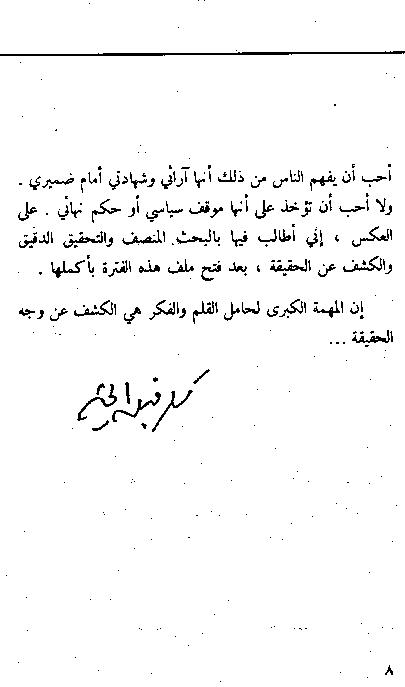 أحب أن يفهم الناس من ذلك أنها آرائي وشهادتي أمام ضميري .
ولا أحب أن تؤخذ على أنها موقف سياسي أو حكم نهائي . على
العكس ، إني أطالب فيها بالبحث المنصف والتحقيق الدقيق
والكشف عن الحقيقة ، بعد فتح ملف هذه الفترة بأكملها .
إن المهمة الكبرى لحامل القلم والفكر هي الكشف عن وجه
الحقيقة ...
٨